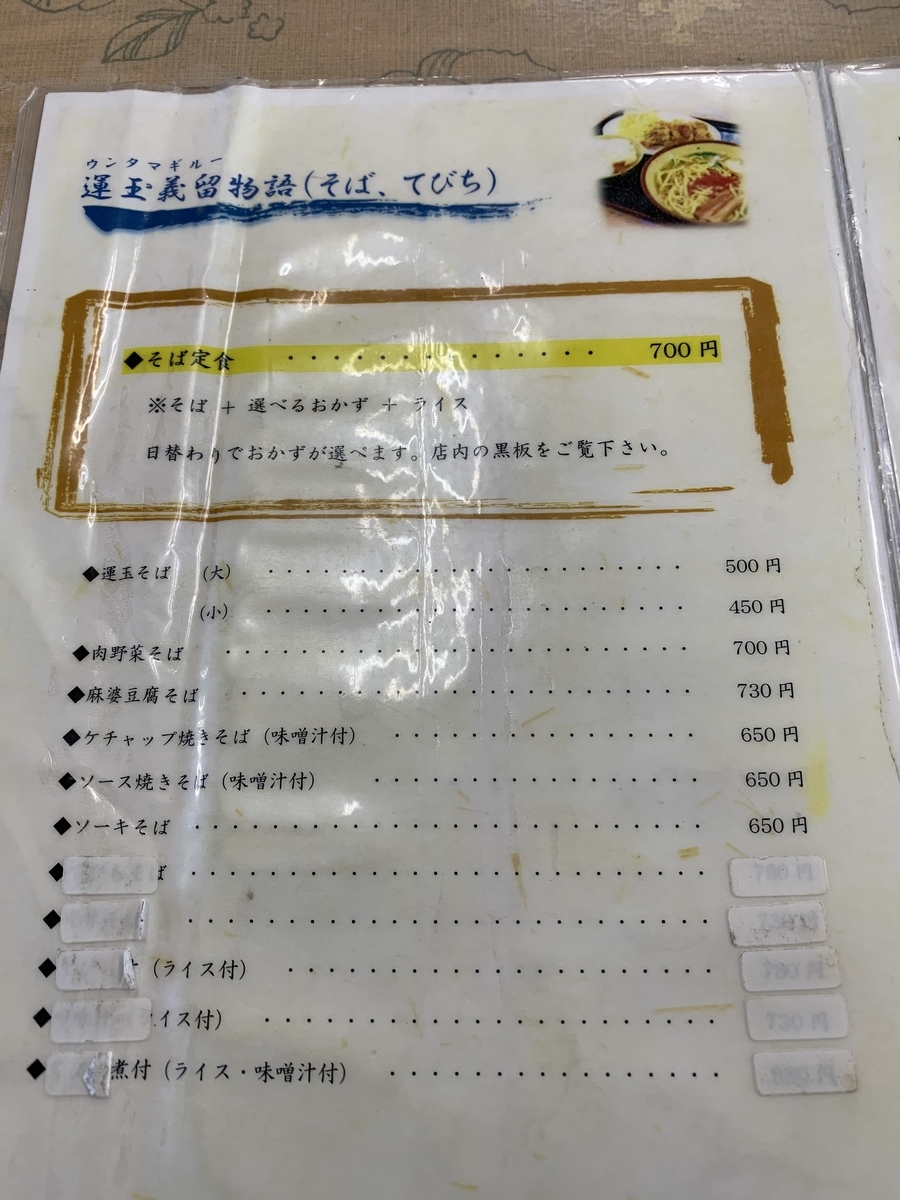 ウンタマギルー
運玉義留物語(そば、てびち)
◆そば定食 ・・・・・・・・・・・・・・ 700円
※そば + 選べるおかず + ライス
日替わりでおかずが選べます。店内の黒板をご覧下さい。
◆運玉そば (大) ・・・・・・・・・・・・・・・・・・・・・ 500円
(小) ・・・・・・・・・・・・・・・・・・・・・ 450円
◆肉野菜そば ・・・・・・・・・・・・・・・・・・・・・・・ 700円
◆麻婆豆腐そば ・・・・・・・・・・・・・・・・・・・・・・ 730円
◆ケチャップ焼きそば(味噌汁付) ・・・・・・・・・・・・・・・ 650円
◆ソース焼きそば(味噌汁付) ・・・・・・・・・・・・・・・・ 650円
◆ソーキそば ・・・・・・・・・・・・・・・・・・・・・・・・ 650円
◆ そば ・・・・・・・・・・・・・・・・・・・・・・・・ 780円
◆ ・・・・・・・・・・・・・・・・・・・・・・・・
◆ (ライス付) ・・・・・・・・・・・・・・・・・・・ 780円
◆ (ライス付) ・・・・・・・・・・・・・・・・・・・・ 730円
◆ 煮付(ライス・味噌汁付) ・・・・・・・・・・・・・・・